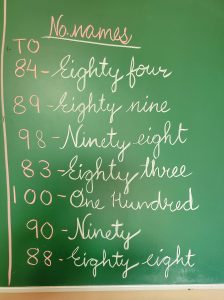 No. names
TO
84-Eighty four
89-Eighty nine
98-Ninety eight
83-Eighty three
100-One Hundred
90-Ninety
88-Eighty eight